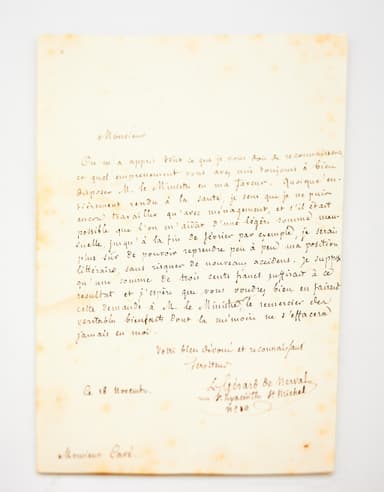 Monsieur
On m'a appris tout ce que je vous dois de reconnaissance
et quel empressement vous avez mis toujours à bien
disposer M. le Ministre en ma faveur. Quoique en-
tièrement rendu à la santé, je sens que je ne puis
encore travailler qu'avec ménagement, et s'il était
possible que l'on m'aidât d'une légère somme men-
suelle jusqu'à la fin de février par exemple, je serais
plus sûr de pouvoir reprendre peu à peu ma position
littéraire sans risquer de nouveaux accidens. Je suppose
qu'une somme de trois cents francs suffirait à ce
résultat et j'espère que vous voudrez bien en faisant
cette demande à M. le Ministre le remercier des
véritables bienfaits dont la mémoire ne s'effacera
jamais en moi.
Votre bien dévoué et reconnaissant
serviteur
Gérard de Nerval
Ce 18 novembre
St hyacinthe St Michel
n° 10
Monsieur Cavé.